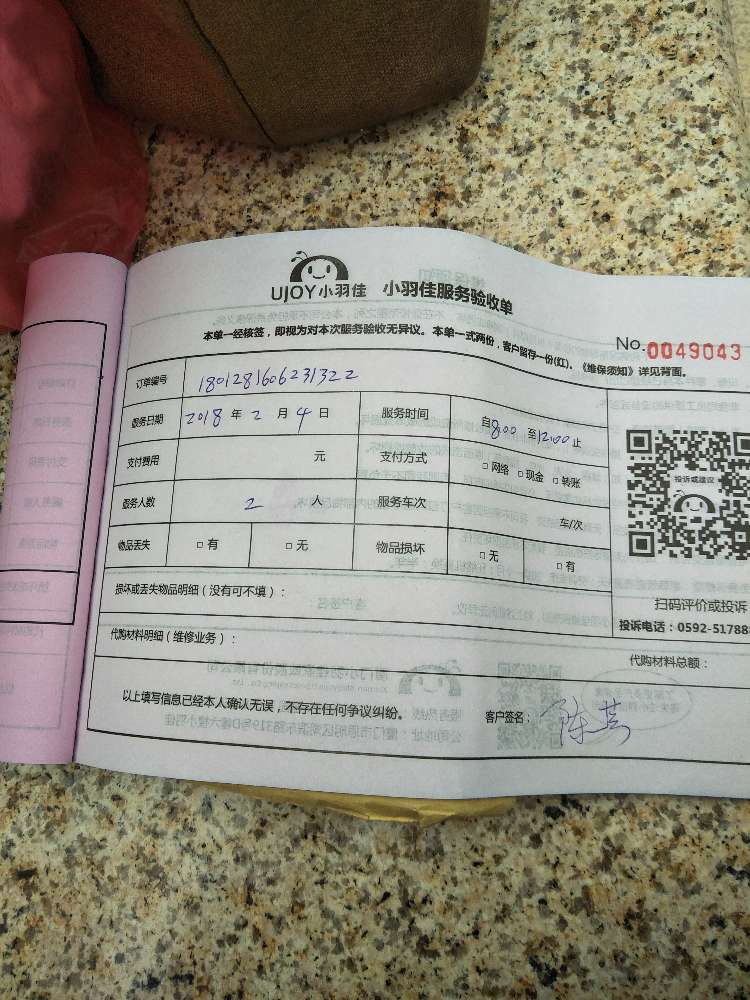 UJOY小羽佳 小羽佳服务验收单
本单一经核签，即视为对本次服务验收无异议。本单一式两份，客户留存一份(红)。《维保须知》详见背面。
No.0049043
订单编号 1801281606231322
服务日期 2018 年 2 月 4 日 服务时间 自8:00 至12:00止
支付费用 元 支付方式 □网络 □现金 □转账
服务人数 2 人 服务车次 车/次
物品丢失 □有 □无 物品损坏 □无 □有
投诉或建议
扫码评价或投诉
投诉电话：0592-517888
损坏或丢失物品明细（没有可不填）：
代购材料明细（维修业务）：
代购材料总额：
以上填写信息已经本人确认无误，不存在任何争议纠纷。 客户签名：